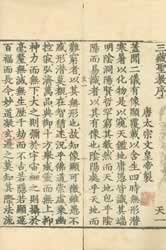 三藏聖教序
天
唐太宗文皇帝製
蓋聞二儀有像顯覆載以含生四時無形潛
寒暑以化物是以窺天鑑地庸愚皆識其端
明陰洞陽賢哲罕窮其數然而天地苞乎陰
陽而易識者以其有像也陰陽處乎天地而
難窮者以其無形也故知像顯可徵雖愚不
惑形潛莫覩在智猶迷況乎佛道崇虛乘幽
控寂弘濟萬品典御十方舉威靈而無上抑
神力而無下大之則彌於宇宙細之則攝於
毫釐無滅無生歷千劫而不古若隱若顯運
百福而長今妙道凝玄遵之莫知其際法流